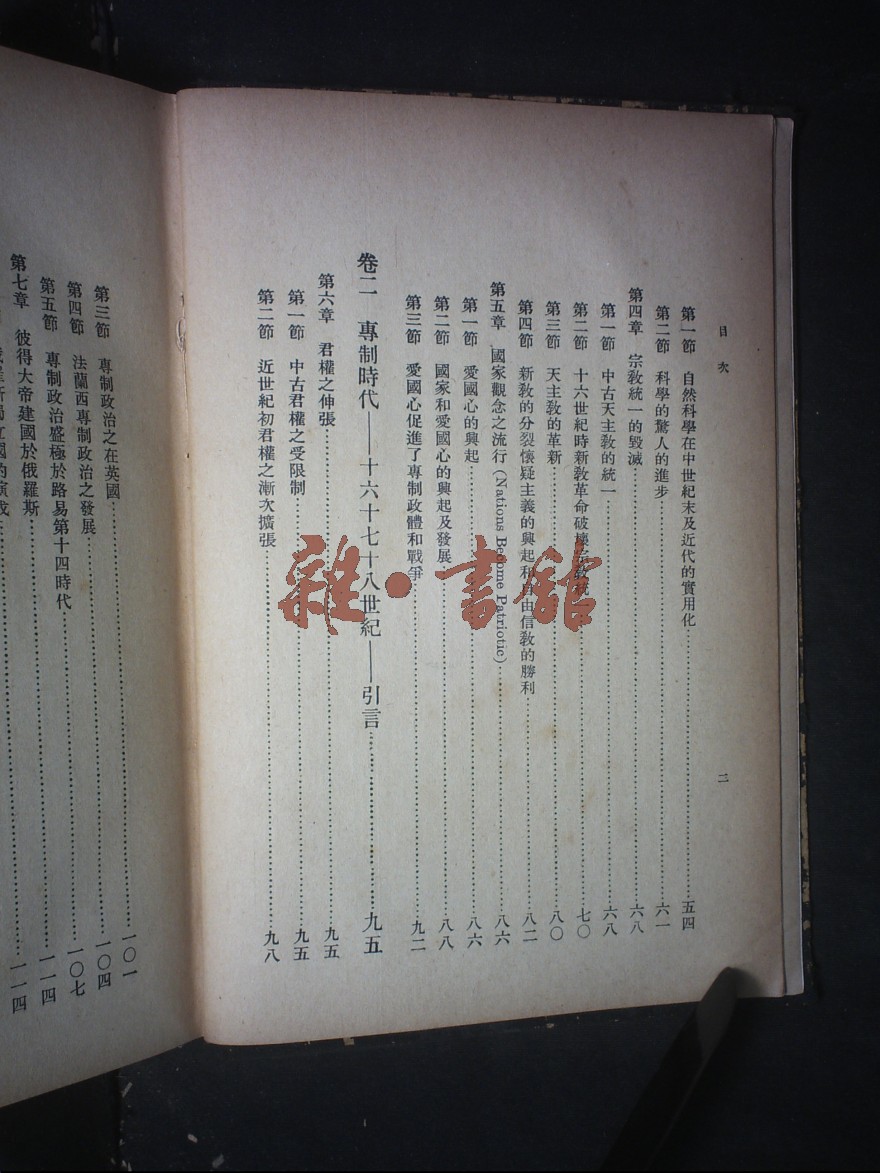 目次
二
第一節 自然科學在中世紀末及近代的實用化……五四
第二節 科學的驚人的進步……六一
第四章 宗敎統一的毀滅……六八
第一節 中古天主敎的統一……六八
第二節 十六世紀時新敎革命破壞……七〇
第三節 天主敎的革新……八〇
第四節 新敎的分裂懷疑主義的興起和自由信敎的勝利……八二
第五章 國家觀念之流行 (Nations Become Patriotic)……八六
第一節 愛國心的興起……八六
第二節 國家和愛國心的興起及發展……八八
第三節 愛國心促進了專制政體和戰爭……九二
卷二 專制時代——十六十七十八世紀——引言……九五
第六章 君權之伸張……九五
第一節 中古君權之受限制……九五
第二節 近世紀初君權之漸次擴張……九八
第三節 專制政治之在英國……一〇一
第四節 法蘭西專制政治之發展……一〇四
第五節 專制政治盛極於路易第十四時代……一〇七
第七章 彼得大帝建國於俄羅斯……一一四
一一四
雜·書館